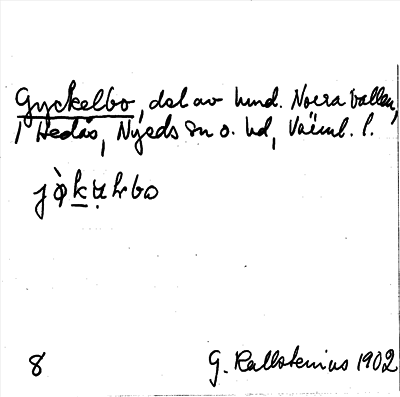 Gyckelbo, del av hmd. Norra Vallen,
i Hedås, Nyeds sn o. hd, Värml. l.
8
G. Kallstenius 1902